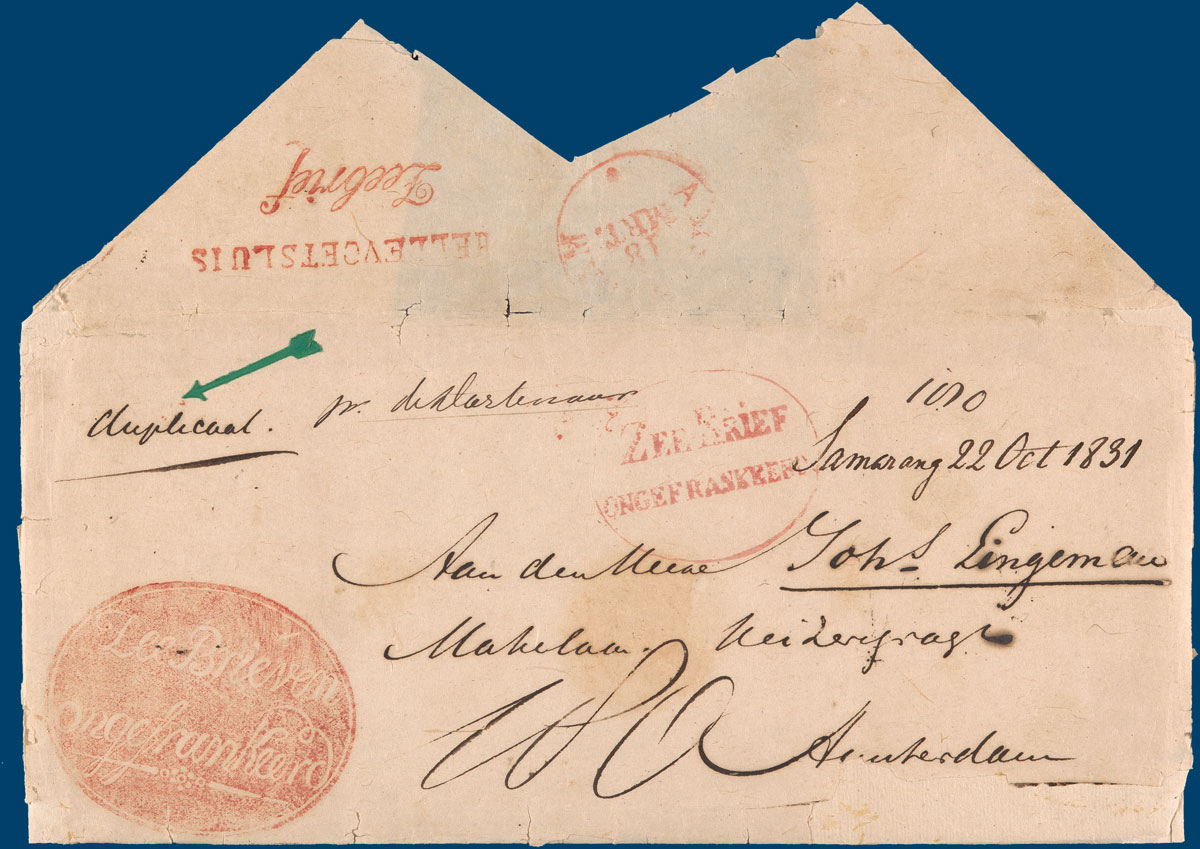 Zeebrief
HELLEVOETSLUIS
MRT.
18
duplicaat.
pr.
1010
ZEE BRIEF
ONGEFRANKEERD
Samarang 22 Oct 1831
Aan den Heere Johs Lingeman
Makelaar. Keizersgragt
Amsterdam
Zee Brieven
ongefrankeerd